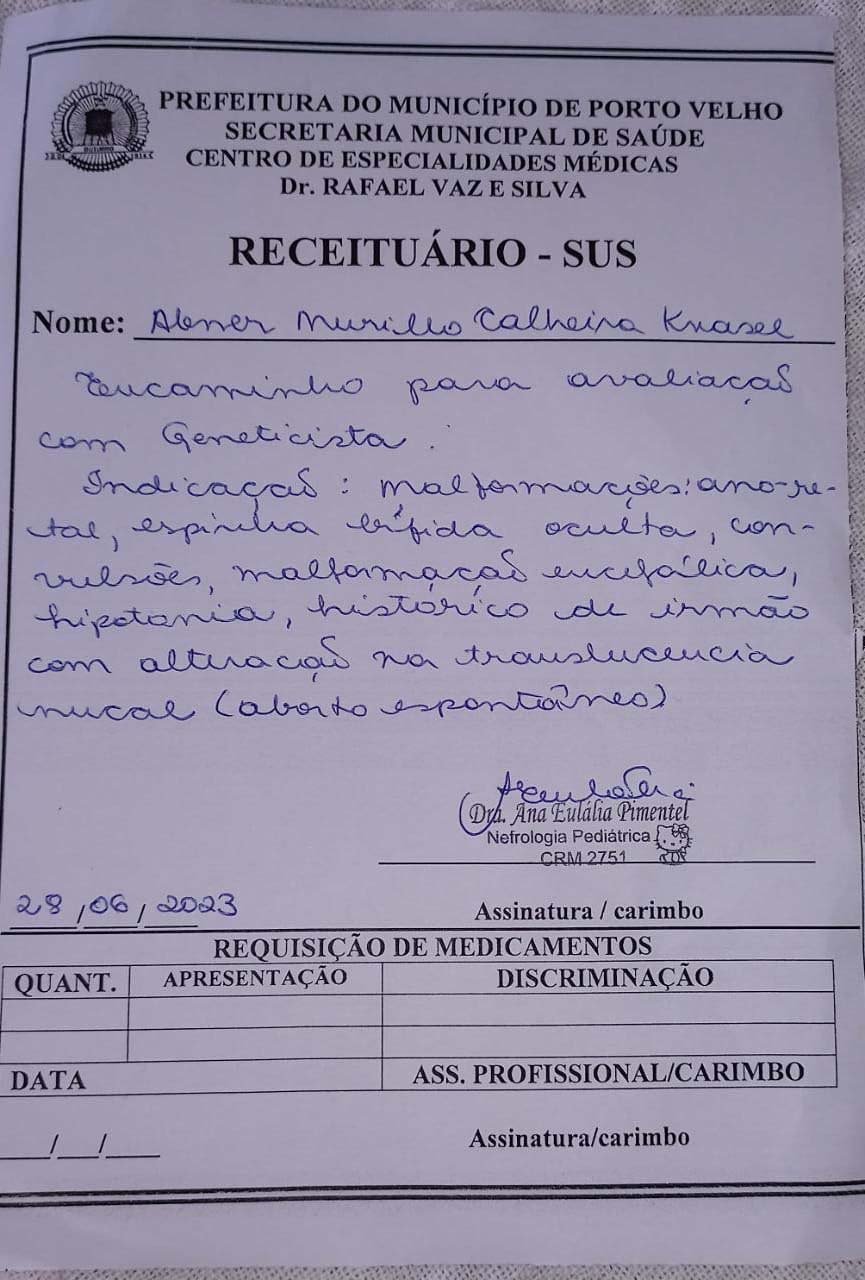 PREFEITURA DO MUNICÍPIO DE PORTO VELHO
SECRETARIA MUNICIPAL DE SAÚDE
CENTRO DE ESPECIALIDADES MÉDICAS
Dr. RAFAEL VAZ E SILVA
RECEITUÁRIO - SUS
Nome: Abner Murillo Calheira Knasel
Encaminho para avaliação
com Geneticista.
Indicação: malformações: ano-re-
tal, espinha bífida oculta, con-
vulsões, malformação encefálica,
hipotonia, histórico de irmão
com alteração na translucencia
nucal (aborto espontâneo)
Dra. Ana Eulália Pimentel
Nefrologia Pediátrica
CRM 2751
28/06/2023
Assinatura / carimbo
REQUISIÇÃO DE MEDICAMENTOS
QUANT. APRESENTAÇÃO DISCRIMINAÇÃO
DATA ASS. PROFISSIONAL/CARIMBO
___/___/___ Assinatura/carimbo